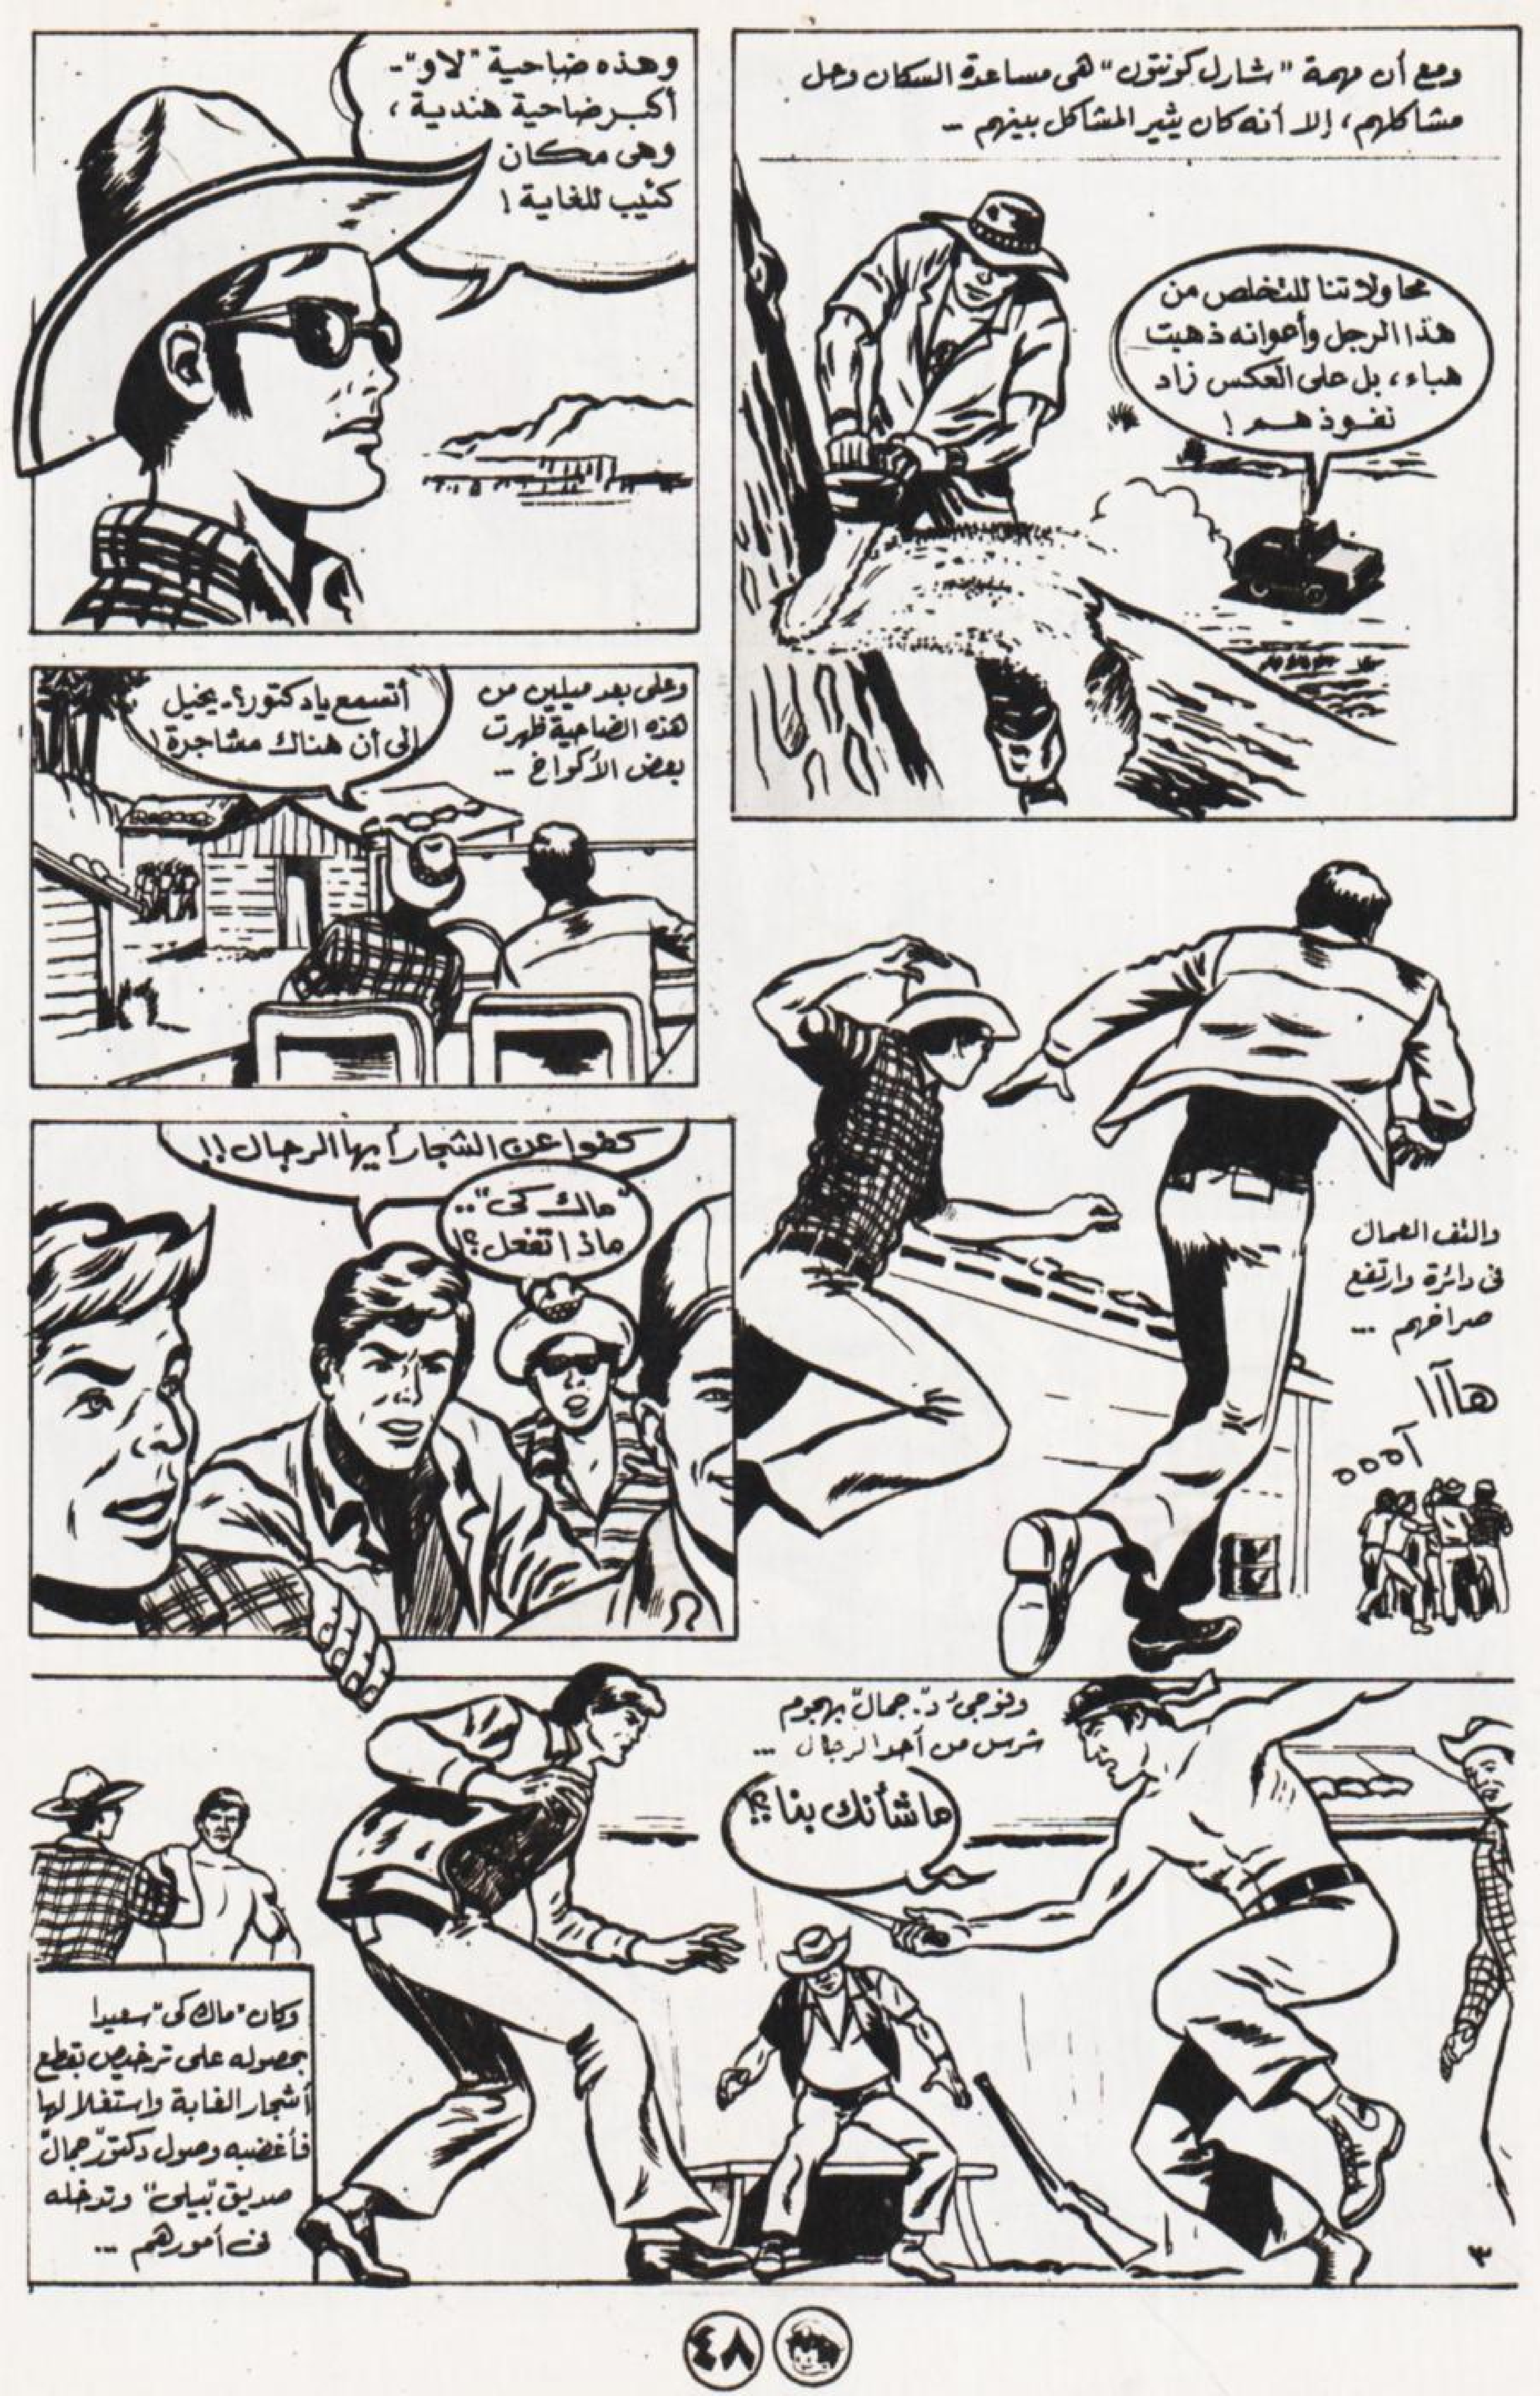 ومع أن مهمة "شارل كونتون" هى مساعدة السكان وحل
مشاكلهم، إلا أنه كان يثير المشاكل بينهم ..
محاولاتنا للتخلص من
هذا الرجل وأعوانه ذهبت
هباء، بل على العكس زاد
نفوذهم !
وهذه ضاحية "لاو"-
أكبر ضاحية هندية،
وهى مكان
كئيب للغاية !
وعلى بعد ميلين من
هذه الضاحية ظهرت
بعض الأكواخ ..
أتسمع يا دكتور؟.. يخيل
إلى أن هناك مشاجرة !
والتف العمال
فى دائرة وارتفع
صراخهم ...
هاآآ
آههه
كفوا عن الشجار أيها الرجال !!
"ماك كى"..
ماذا تفعل ؟!
وفوجئ "د. جمال" بهجوم
شرس من أحد الرجال ...
ما شأنك بنا ؟!
وكان "ماك كى" سعيدا
بحصوله على ترخيص بقطع
أشجار الغابة واستغلالها
فأغضبه وصول دكتور "جمال"
صديق "بيلى" وتدخله
فى أمورهم ...
٣
٤٨